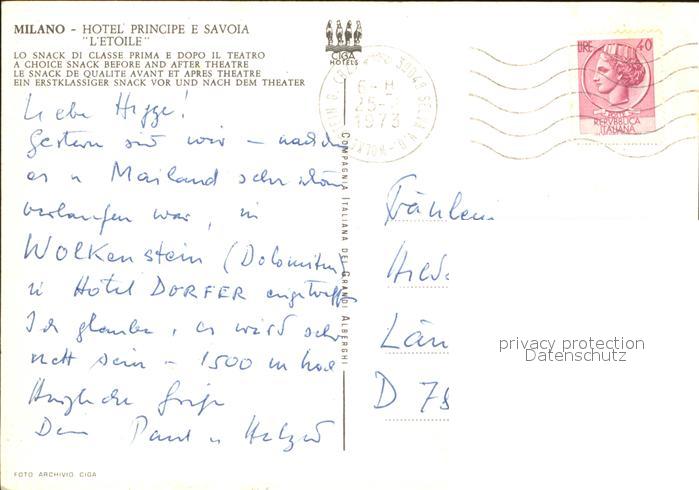 MILANO - HOTEL PRINCIPE E SAVOIA
"L'ETOILE"
LO SNACK DI CLASSE PRIMA E DOPO IL TEATRO
A CHOICE SNACK BEFORE AND AFTER THEATRE
LE SNACK DE QUALITE AVANT ET APRES THEATRE
EIN ERSTKLASSIGER SNACK VOR UND NACH DEM THEATER
CIGA
HOTELS
Gestern sind wir - nachdem
es in Mailand sehr schön
verlaufen war, in
WOLKENSTEIN (Dolomiten)
in Hotel DORFER eingetroffen
Ich glaube, es wird sehr
nett sein - 1500 m hoch
Herzliche Grüße
Dein Paul u
COMPAGNIA ITALIANA DEI GRANDI ALBERGHI
FOTO ARCHIVIO CIGA
39048 SELVA
25
1973
LIRE 40
POSTE
REPVBBLICA
ITALIANA
Fräulein
Hild
Län
D 78
privacy protection
Datenschutz